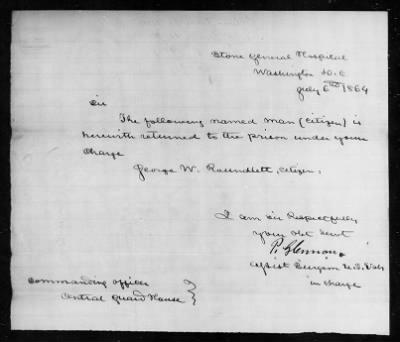 Stone General Hospital
Washington D.C
July 6th 1864
Sir
The following named man (Citizen) is
herewith returned to the prison under your
charge
George W. Citizen.
I am Sir Respectfully
your Obt Servt
P. Glennon
Asst Surgeon U.S. Vols
in charge
Commanding officer
Central Guard House